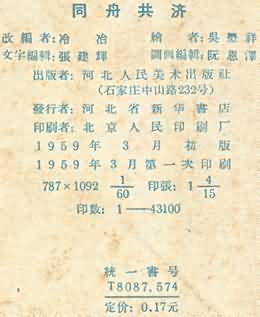 同舟共济
改编者：冷冶 繪者：吳墨祥
文字編輯：張建輝 圖画編輯：阮恩澤
出版者：河北人民美术出版社
（石家庄中山路232号）
發行者：河北省新华書店
印刷者：北京人民印刷厂
1959年3月初版
1959年3月第一次印刷
787×1092 1/60 印張：1 4/15
印数：1—43100
統一書号
T8087.574
定价：0.17元